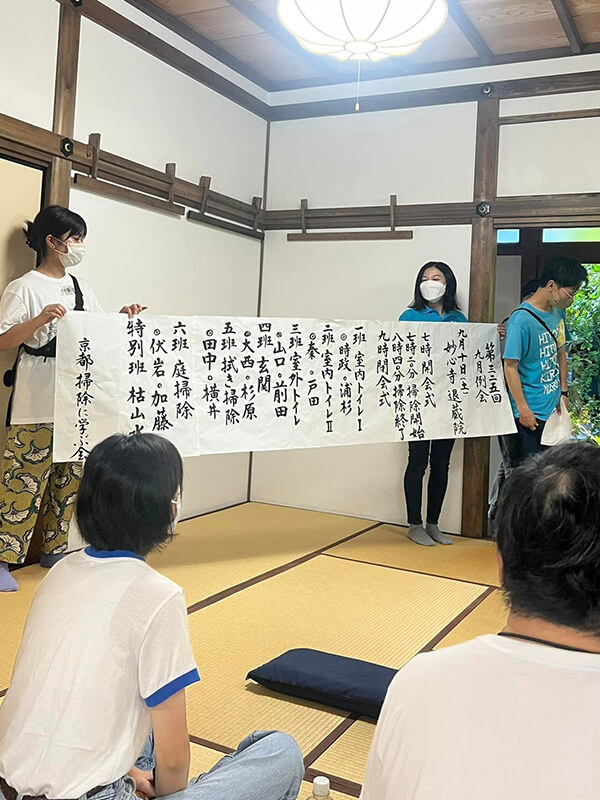 第三二五回
九月例会
九月十日(土)
妙心寺 退蔵院
七時 開会式
七時二〇分 掃除開始
八時四〇分 掃除終了
九時 閉会式
一班 室内トイレⅠ
◎時政。浦杉
二班 室内トイレⅡ
◎秦。戸田
三班 室外トイレ
◎山口。前田
四班 玄関
◎大西。杉原
五班 拭き掃除
◎田中。横井
六班 庭掃除
◎伏岩。加藤
特別班 枯山水
京都 掃除に学ぶ会